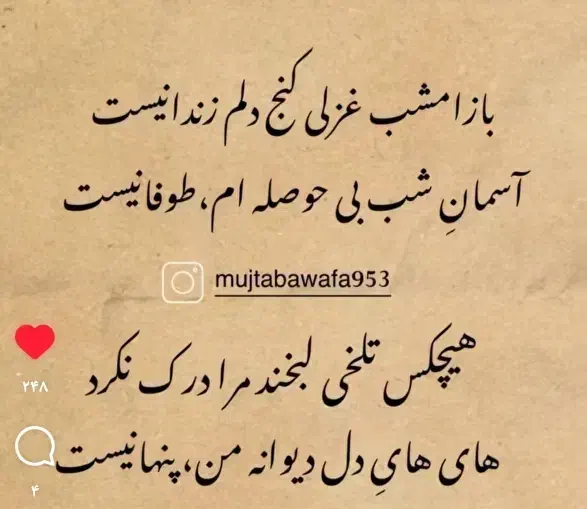 باز امشب غزلی کنج دلم زندانیست
آسمانِ شب بی حوصله ام، طوفانیست
mujtabawafa953
هیچکس تلخی لبخند مرا درک نکرد
۲۴۸
های هایِ دل دیوانه من، پنهانیست
۴